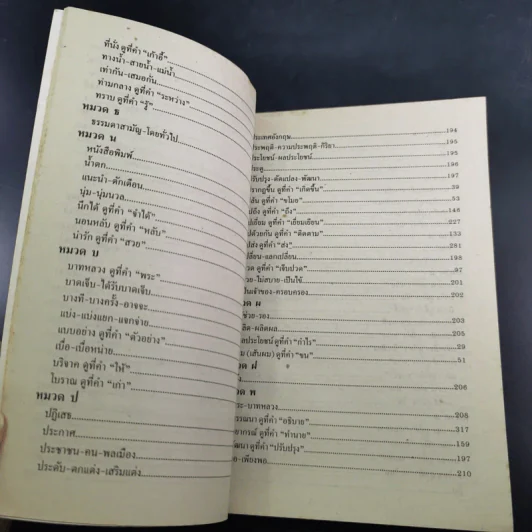 ที่นั่ง ดูที่คำ "เก้าอี้"
ทางน้ำ-สายน้ำ-แม่น้ำ
เท่ากัน-เสมอกัน
ท่ามกลาง ดูที่คำ "ระหว่าง"
ทราบ ดูที่คำ "รู้"
หมวด ธ
ธรรมดาสามัญ-โดยทั่วไป
หมวด น
หนังสือพิมพ์
น้ำตก
แนะนำ-ตักเตือน
นุ่ม-นุ่มนวล
นึกได้ ดูที่คำ "จำได้"
นอนหลับ ดูที่คำ "หลับ"
น่ารัก ดูที่คำ "สวย"
หมวด บ
บาทหลวง ดูที่คำ "พระ"
บาดเจ็บ-ได้รับบาดเจ็บ
บางที-บางครั้ง-อาจจะ
แบ่ง-แบ่งแยก-แจกจ่าย
แบบอย่าง ดูที่คำ "ตัวอย่าง"
เบื่อ-เบื่อหน่าย
บริจาค ดูที่คำ "ให้"
โบราณ ดูที่คำ "เก่า"
หมวด ป
ปฏิเสธ
ประกาศ
ประชาชน-คน-พลเมือง
ประดับ-ตกแต่ง-เสริมแต่ง
ประเทศอังกฤษ 194
ประพฤติ-ความประพฤติ-กิริยา 195
ประโยชน์-ผลประโยชน์ 195
196
ปรับปรุง-ดัดแปลง-พัฒนา 197
ปรากฏขึ้น ดูที่คำ "เกิดขึ้น" 29
ดูที่คำ "ขโมย" 53
ดูที่คำ "ถึง" 148
ดูที่คำ "เยี่ยมเยือน" 227
ไปด้วยกัน ดูที่คำ "ติดตาม" 132
ดูที่คำ "ส่ง" 281
เปลี่ยน-แลกเปลี่ยน 198
ปวด ดูที่คำ "เจ็บปวด" 97
ป่วย-ไม่สบาย-เป็นไข้ 201
เป็นเจ้าของ-ครอบครอง 202
หมวด ผ
203
ผลิต-ผลิตผล 205
ดูที่คำ "กำไร" 29
(เส้นผม) ดูที่คำ "ขน" 51
หมวด ฝ
206
หมวด พ
พระ-บาทหลวง 208
พรรณนา ดูที่คำ "อธิบาย" 317
พยากรณ์ ดูที่คำ "ทำนาย" 159
พัฒนา ดูที่คำ "ปรับปรุง" 197
พอ-เพียงพอ 210